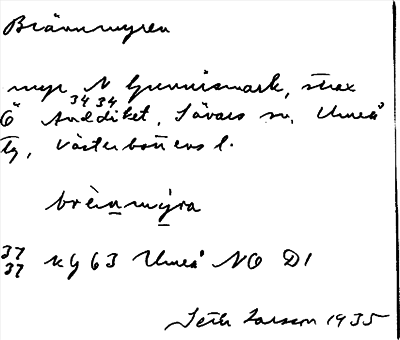 Brännmyren
myr N Gunnismark, strax
34 34
Ö Anddiket, Sävars sn, Umeå
tg, Västerbottens l.
brènmýra
37
37 KG 63 Umeå NO D1
Seth Larsson 1935